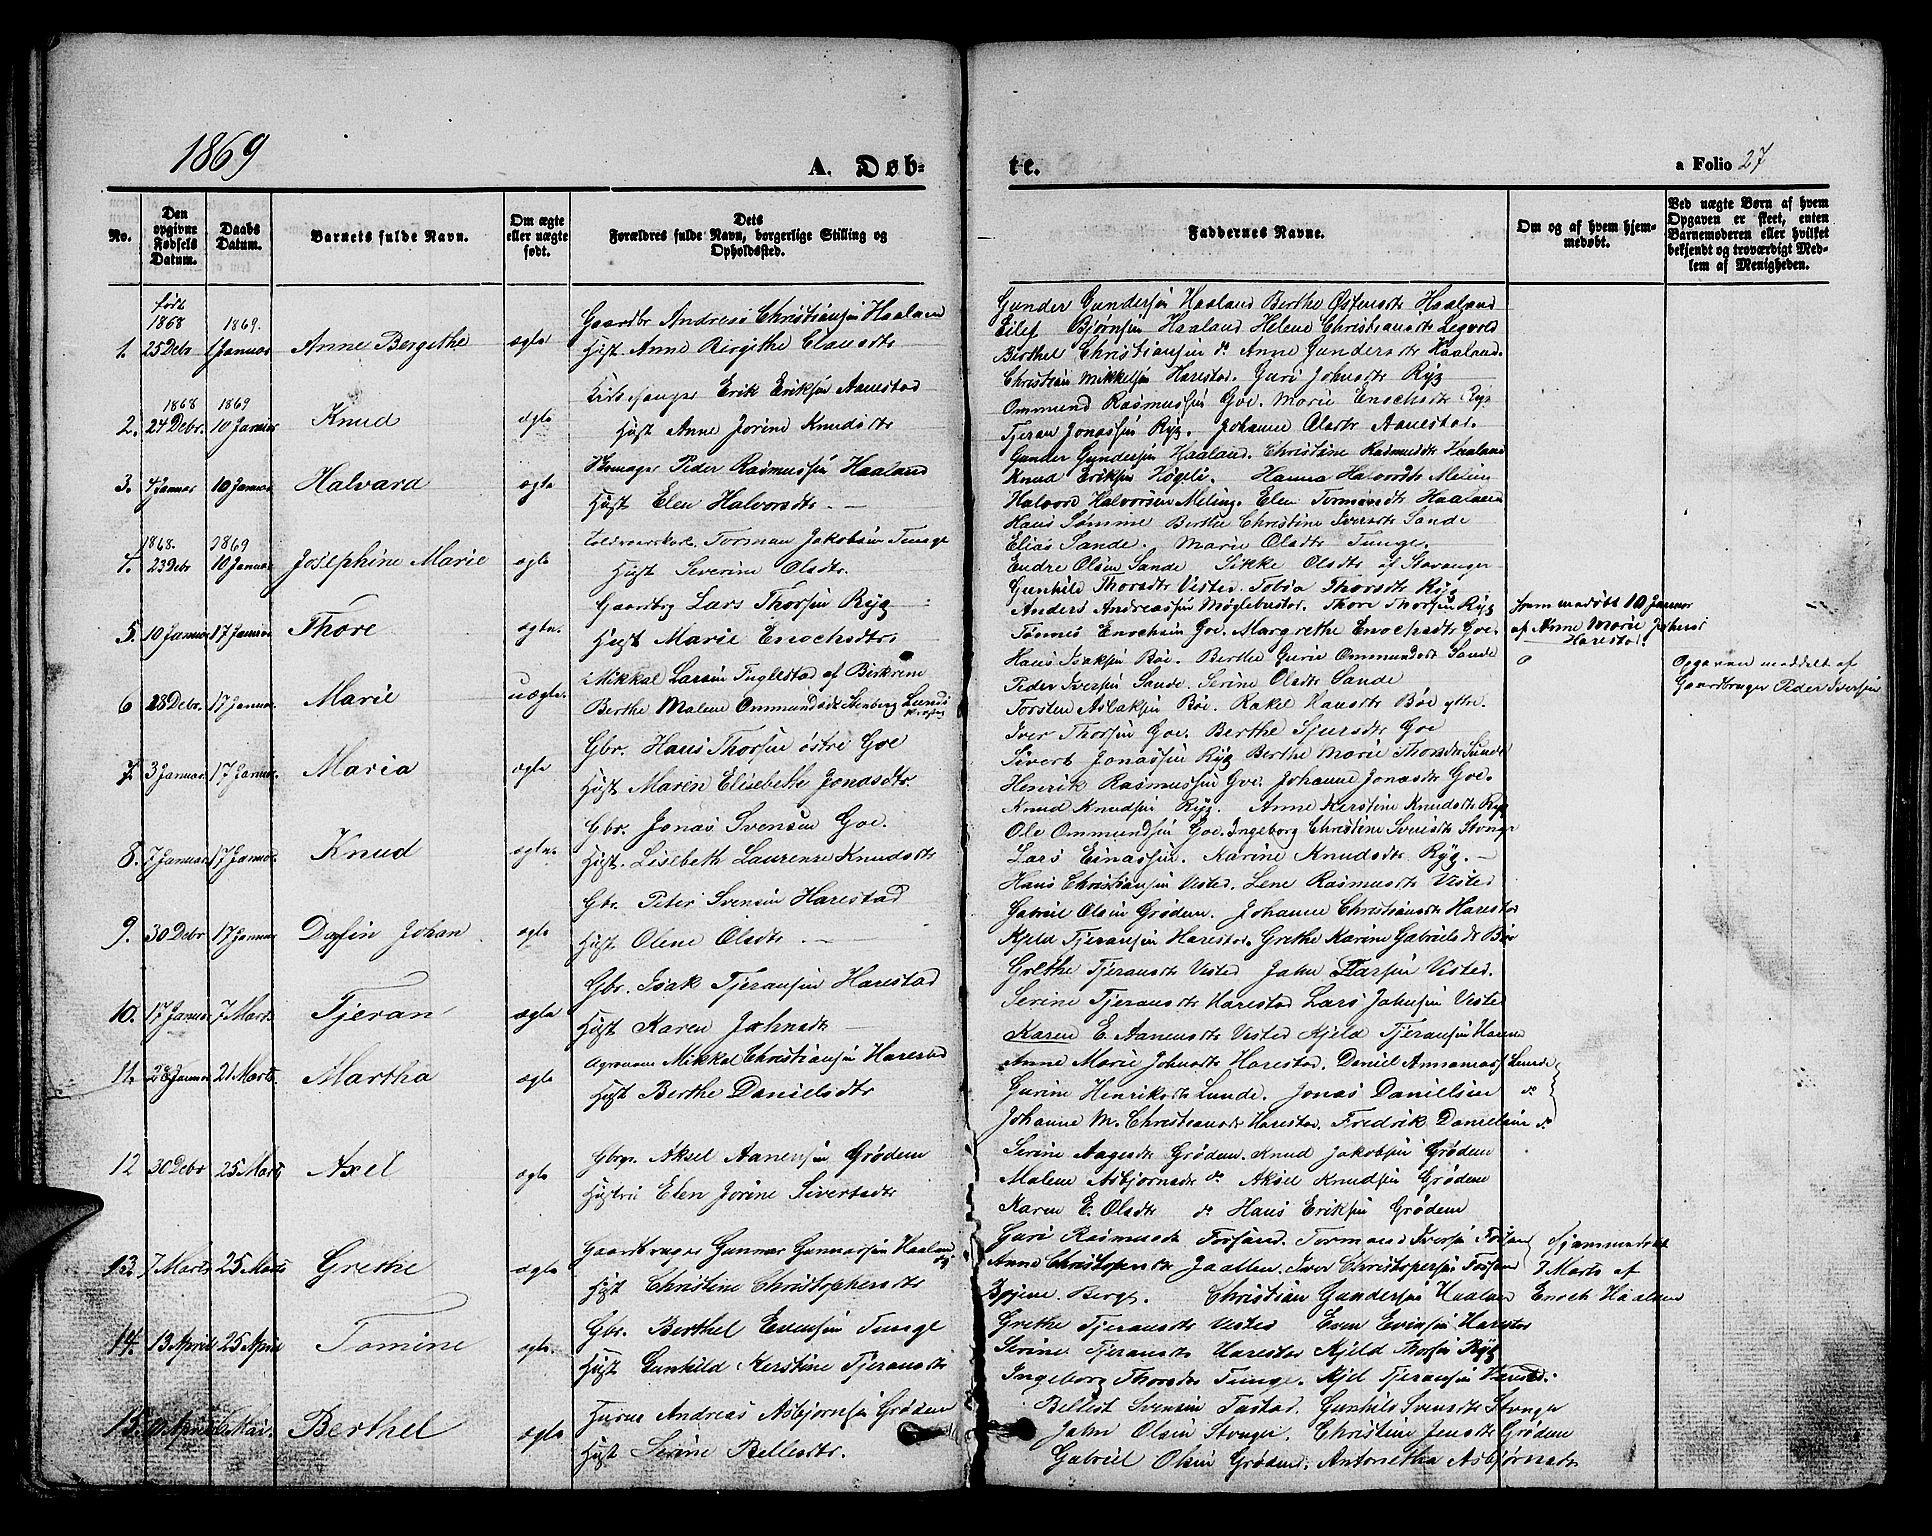 1869
A. Døb-
te.
a Folio 27
No.
Den opgivne Fødsels Datum.
Daabs Datum.
Barnets fulde Navn.
Om ægte eller uægte født.
Dets Forældres fulde Navn, borgerlige Stilling og Opholdssted.
Faddernes Navne.
Om og af hvem hjemmedøbt.
Ved uægte Børn af hvem Opgaven er skeet, enten Barnemoderen eller hvilket bekjendt og troværdigt Medlem af Menigheden.
født
1868 1869.
1. 25 Debr 1 Januar Anne Bergithe ægte Gaardbr Andreas Christiansen Haaland
Hust. Anne Birgithe Clausdtr
Gunder Gundersen Haaland Berthe Ostensdtr Haaland
Eilef Bjørnsen Haaland Helene Christiansdtr Legvold
Berthel Christiansen do. Anne Gundersdtr Haaland.
1868 1869
2. 24 Debr. 10 Januar Knud ægte Kirkesanger Erik Eriksen Aanestad
Hust Anne Jorine Knudsdtr
Christian Mikkelsen Harestad. Guri Johnsdtr Ryg
Ommund Rasmussen Goe. Marie Enochsdtr Ryg
Tjeran Jonassen Ryg. Johanne Olsdtr Aanestad.
3. 4 Januar 10 Januar Halvard ægte Peder Rasmussen Haaland
Hust Elen Halvorsdtr
Gunder Gundersen Haaland. Christine Rasmusdtr Haaland
Knud Eriksen Høgeli. Hanna Halvorsdtr Meling
Halvord Halvorsen Meling. Elen Tormodsdtr Haaland
1868. 1869
4. 23 Debr 10 Januar Josephine Marie ægte Torman Jakobsen Tunge
Hust Severine Olsdtr.
Hans Sømme Berthe Christine Iversdtr Sande
Elias Sande. Marie Olsdtr Tunge.
Endre Olsen Sande Sikke Olsdtr af Stavanger
5. 10 Januar 17 Januar Thore ægte. Gaardbrg Lars Thorsen Ryg
Hust Marie Enochsdtr
Gunhild Thorsdtr Visted Tobia Thorsdtr Ryg
Anders Andreassen Møglebustad. Thore Thorsen Ryg
Tønnes Enochsen Goe. Margrethe Enochsdtr Goe.
hjemmedøbt 10 Januar
af Anne Marie
Harestad.
6 28 Debr. 17 Januar Marie uægte. Mikkal Larsen Fuglestad af Birkrem
Berthe Malene Ommundsdtr Stenberg Lunds
Hans Isaksen Bøe. Berthe Gurie Ommundsdtr Sande
Peder Iversen Sande. Serine Olsdtr Sande
Torsten Asbaksen Bøe. Rakel Hansdtr Bøe ytre.
Opgaven meddelt af
Gaardbruger Peder Iversen
7. 3 Januar 17 Januar Maria ægte Gbr. Hans Thorsen østre Goe
Hust Maren Elisebeth Jonasdtr.
Iver Thorsen Goe. Berthe Sjursdtr Goe
Sivert Jonassen Ryg Berthe Marie Thorsdtr Sunde
Henrik Rasmussen Goe. Johanne Jonasdtr Goe.
8. 7 Januar 17 Januar Knud ægte. Gbr. Jonas Svensen Goe.
Hust. Lisebeth Laurense Knudsdtr
Knud Knudsen Ryg. Anne Kerstine Knudsdtr Ryg
Ole Ommundsen Goe. Ingeborg Christine Svensdtr
Lars Einassen. Karine Knudsdtr Ryg.
9. 30 Debr 17 Januar Johan ægte Gbr. Peter Svensen Harestad
Hust Olene Olsdtr
Hans Christiansen Visted. Lene Rasmusdtr Visted
Gabriel Olsen Grødem. Johanne Christiansdtr Harestad
Kjeld Tjeransen Harestad. Grethe Karine Gabrielsdtr Bøe
10. 17 Januar 7 Marts Tjeran ægte Gbr. Isak Tjeransen Harestad
Hust Karen Johnsdtr
Grethe Tjeransdtr Visted John Larsen Visted.
Serine Tjeransdtr Harestad Lars Johnsen Visted
Karen E. Aanensdtr Visted Kjeld Tjeransen
11. 28 Januar 21 Marts. Martha ægte Mikkal Christiansen Harestad
Hust Berthe Danielsdtr
Anne Marie Johnsdtr Harestad. Daniel Lunde
Gurine Henriksdtr Lunde. Jonas Danielsen do
Johanne M. Christiansdtr Harestad. Fredrik Danielsen do
12 30 Debr 25 Marts Axel ægte Gbrgr. Aksel Aanensen Grødem
Hustru Elen Jorine Sivertsdtr
Serine Aagesdtr Grødem. Knud Jakobsen Grødem
Malene Asbjornsdtr do Aksel Knudsen Grødem
Karen E. Olsdtr do Hans Eriksen Grødem
13. 7 Marts 25 Marts Grethe ægte Gaardbruger Gunnar Gunnarsen Haaland
Hust Christine Christophersdtr
Guri Rasmusdtr Forsand. Tormod Iversen Forsand
Anne Christophersdtr Jaatten. Iver Christophersen Forsand
Berge. Christian Gundersen Haaland
Hjemmedøbt
7 Marts af
Enoch Haaland
14. 13 April 25 April Tomine ægte. Gbr. Berthel Evensen Tunge
Hust Gunhild Kerstine Tjeransdtr
Grethe Tjeransdtr Visted Even Evensen Harestad
Serine Tjeransdtr Harestad Kjeld Thorsen Ryg
Ingeborg Thorsdtr Tunge. Kjel Tjeransen Harestad.
15. April 6 Mai. Berthel ægte Andreas Asbjornsen Grødem
Hust Serine Bellesdtr.
Bellest Svensen Tastad. Gunhild Svensdtr
John Olsen. Christine Jensdtr Grødem
Gabriel Olsen Grødem. Antonetha Asbjørnsdtr